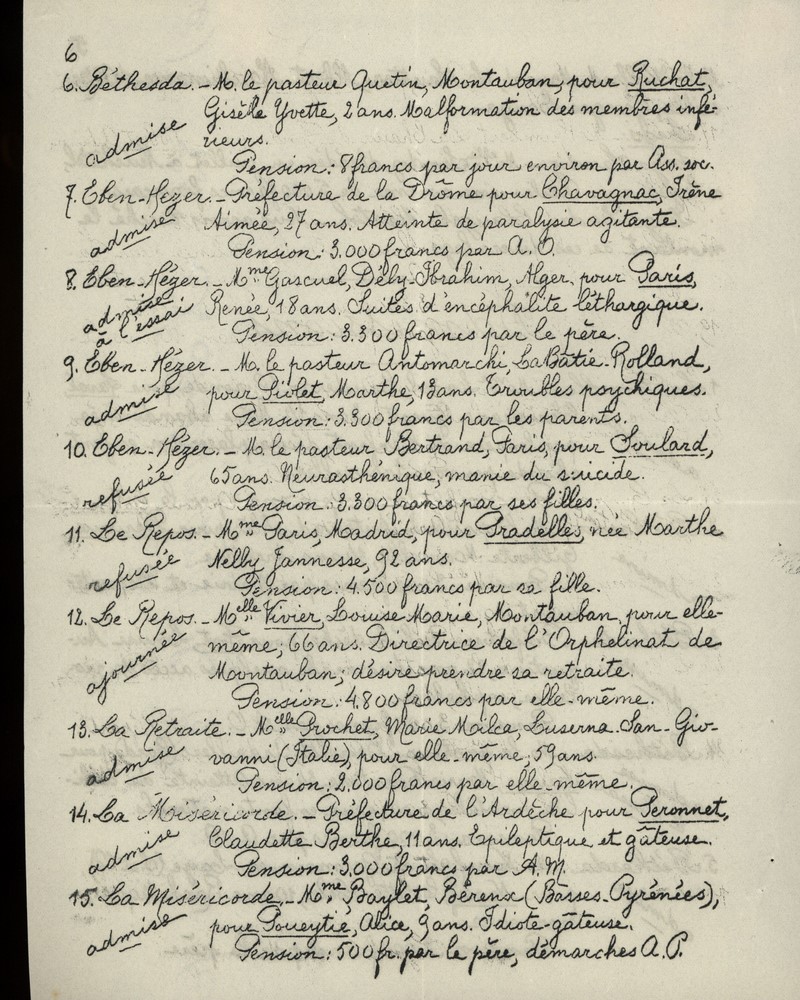 6
6. Béthesda. - M. le pasteur Quetin, Montauban, pour Ruchat,
Gisèle Yvette, 2 ans. Malformation des membres infé-
admise rieurs.
Pension: 8 francs par jour environ par Ass. soc.
7. Eben-Hézer. - Préfecture de la Drôme pour Chavagnac, Irène
admise Aimée, 27 ans. Atteinte de paralysie agitante.
Pension: 3.000 francs par A. O.
8. Eben-Hézer. - Mme Gascuel, Dély-Ibrahim, Alger, pour Paris,
admise Renée, 18 ans. Suites d'encéphalite léthargique.
à l'essai Pension: 3.300 francs par le père.
9. Eben-Hézer. - M. le pasteur Antomarchi, La Bâtie-Rolland,
admise pour Piolet, Marthe, 13 ans. Troubles psychiques.
Pension: 3.300 francs par les parents.
10. Eben-Hézer. - M. le pasteur Bertrand, Paris, pour Soulard,
refusée 65 ans. Neurasthénique, manie du suicide.
Pension: 3.300 francs par ses filles.
11. Le Repos. - Mme Paris, Madrid, pour Pradelles, née Marthe
refusée Nelly Jannesse, 92 ans.
Pension: 4.500 francs par sa fille.
12. Le Repos. - Melle Vivier, Louise Marie, Montauban, pour elle-
ajournée même, 66 ans. Directrice de l'Orphelinat de
Montauban; désire prendre sa retraite.
Pension: 4.800 francs par elle-même.
13. La Retraite. - Melle Prochet, Marie Milca, Luserna-San-Gio-
admise vanni (Italie), pour elle-même, 59 ans.
Pension: 2.000 francs par elle-même.
14. La Miséricorde. - Préfecture de l'Ardèche pour Peronnet,
admise Claudette Berthe, 11 ans. Epileptique et gâteuse.
Pension: 3.000 francs par A. M.
15. La Miséricorde. - Mme Baylet, Bérenx (Basses-Pyrénées),
admise pour Poueytié, Alice, 9 ans. Idiote-gâteuse.
Pension: 500 fr. par le père, démarches A. P.